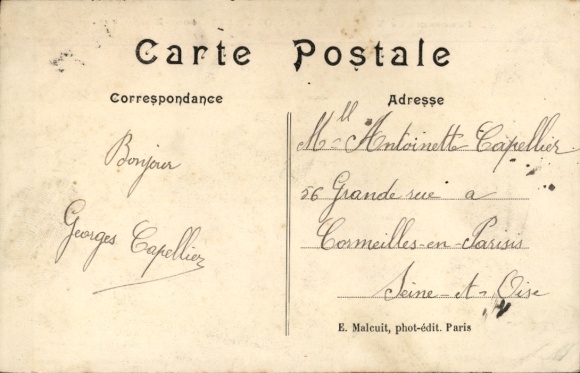 Carte Postale
Correspondance
Adresse
Bonjour
Georges Capellier
Mll Antoinette Capellier
26 Grande rue a
Cormeilles-en-Parisis
Seine-et-Oise
E. Malcuit, phot-édit. Paris